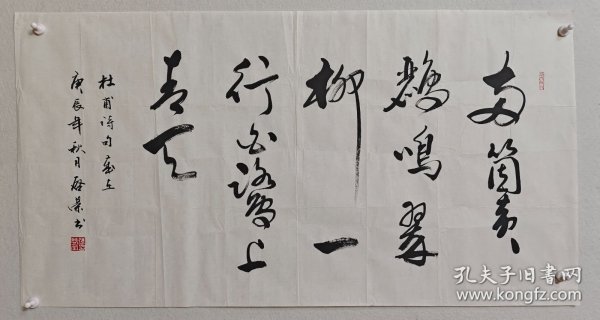 两箇黄
鹂鸣翠
柳一
行白鹭上
青天
杜甫诗句
庚辰年秋月
书
孔夫子旧书网
www.kongfz.com